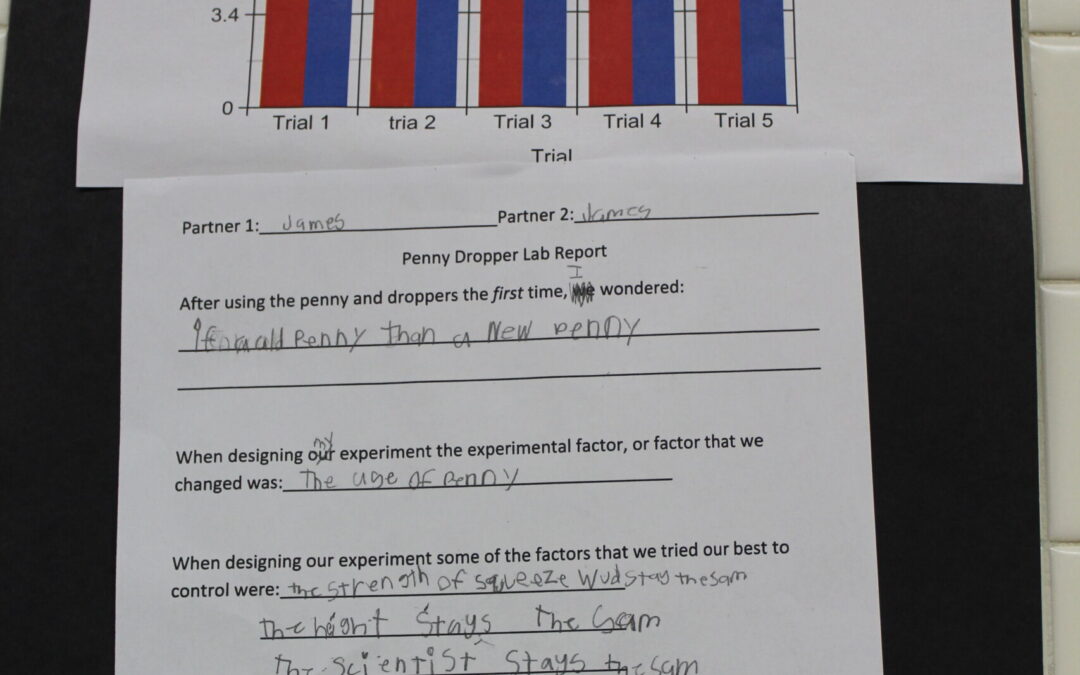 3.4
0
Trial 1 tria 2 Trial 3 Trial 4 Trial 5
Trial
Partner 1: James Partner 2: James
Penny Dropper Lab Report
I
After using the penny and droppers the first time, we wondered:
old Penny than a New penny
my
When designing our experiment the experimental factor, or factor that we
changed was: The age of Penny
When designing our experiment some of the factors that we tried our best to
control were: the strength of squeeze wud stay the sam
the hight Stays the Sam
the scientist stays the sam